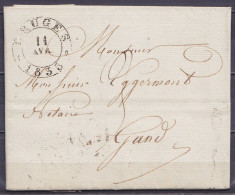 BRUGES
11
AVR
1833
Monsieur
Monsieur Eggermont
Notaire
Gand